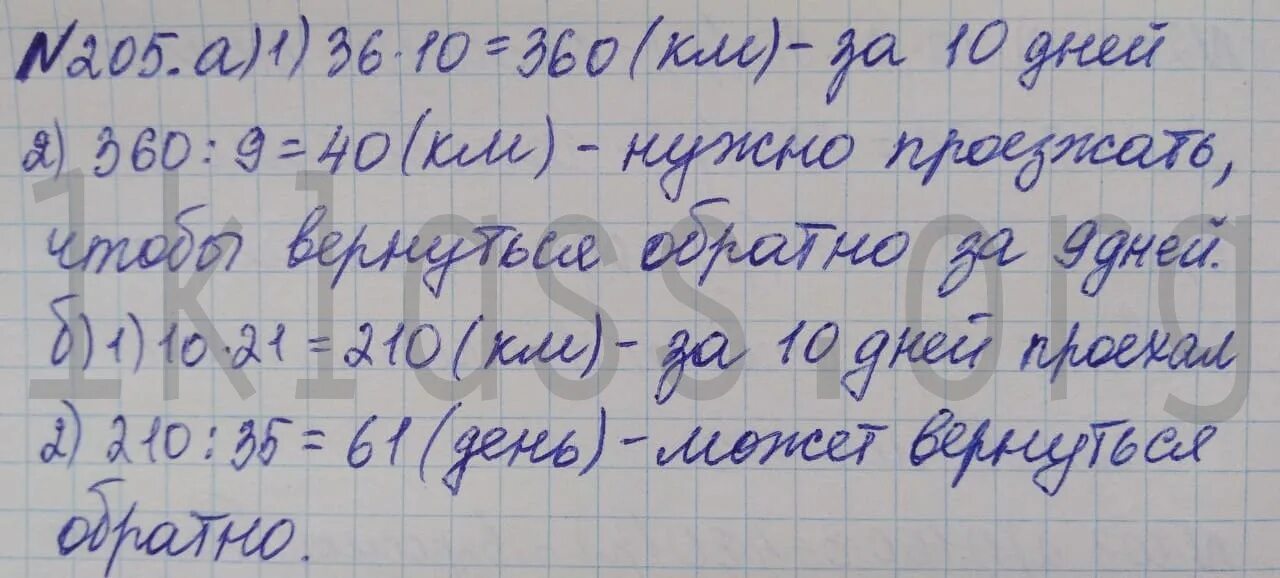 №205. а) 1) 36·10=360 (км) - за 10 дней
2) 360:9=40 (км) - нужно проезжать,
чтобы вернуться обратно за 9 дней.
б) 1) 10·21=210 (км) - за 10 дней проехал
2) 210:35=61 (день) - может вернуться
обратно.
1klass.org